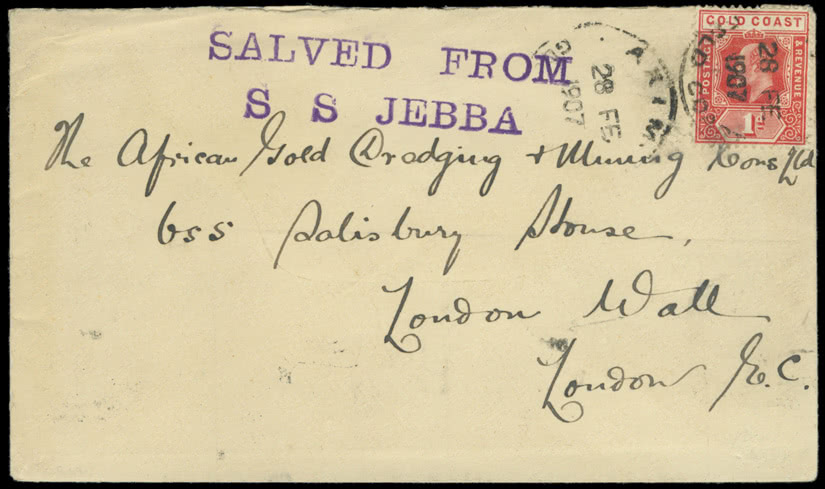 SALVED FROM
S S JEBBA
GOLD COAST
POSTAGE & REVENUE
1d
28
1907
AKIM
28 FE
1907
The African Gold Dredging & Mining Cons Ltd
655 Salisbury House,
London Wall
London E.C.